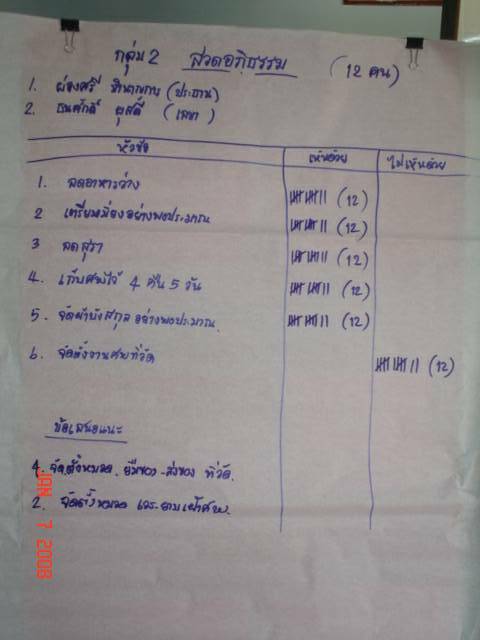 กลุ่ม 2 สวดอภิธรรม (12 คน)
1. ผ่องศรี (ประธาน)
2. ธนศักดิ์ ผุสดี (เลขา)
หัวข้อ เห็นด้วย ไม่เห็นด้วย
1. ลดอาหารว่าง (12)
2 เตรียมเมี่ยงอย่างพอประมาณ (12)
3 ลดสุรา (12)
4. เก็บศพไว้ 4 คืน 5 วัน (12)
5. จัดผ้าบังสกุลอย่างพอประมาณ (12)
6. จัดตั้งงานศพที่วัด (12)
ข้อเสนอแนะ
1. จัดตั้งหมวด ยืมของ - ส่งของ ที่วัด.
2. จัดตั้งหมวด เวร-ยามเฝ้าศพ.
JAN 7 2008